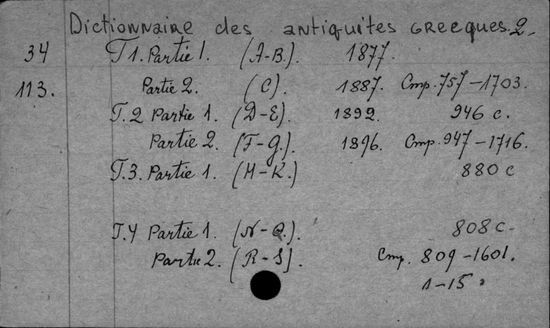 Dictionnaire des antiquites grecques. 2.
34 T 1. Partie 1. (A-B.) 1877.
113. Partie 2. (C) 1887. Стр. 757-1703.
T. 2 Partie 1. (D-E) 1892. 946 с.
Partie 2. (F-G.) 1896. Стр. 947-1716.
T. 3. Partie 1. (H-K.) 880 с
T. 4 Partie 1. (N-Q.) 808 с.
Partie 2. (R-S). Стр. 809-1601.
1-15